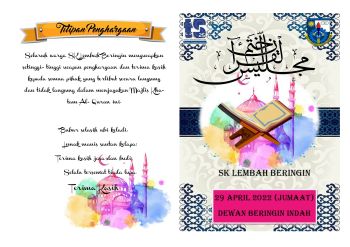 Titipan Penghargaan
Seluruh warga SK Lembah Beringin mengucapkan
setinggi-tinggi ucapan penghargaan dan terima kasih
kepada semua pihak yang terlibat secara langsung
dan tidak langsung dalam menjayakan Majlis Kha-
tam Al-Quran ini.
Buber selasih ubi keladi,
Lauk menis santan kelapa;
Terima kasih jasa dan budi,
Selalu tersemat tiada lupa.
Terima Kasih
مجلس ختم القرآن
SK LEMBAH BERINGIN
29 APRIL 2022 (JUMAAT)
DEWAN BERINGIN INDAH